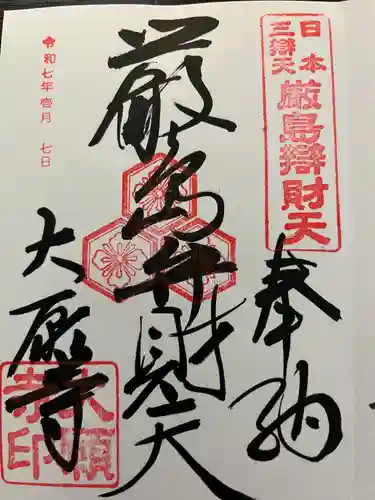 日本
三辯天
厳島辯財天
奉納
厳島弁財天
令和七年壱月 七日
大願寺
大願
寺印